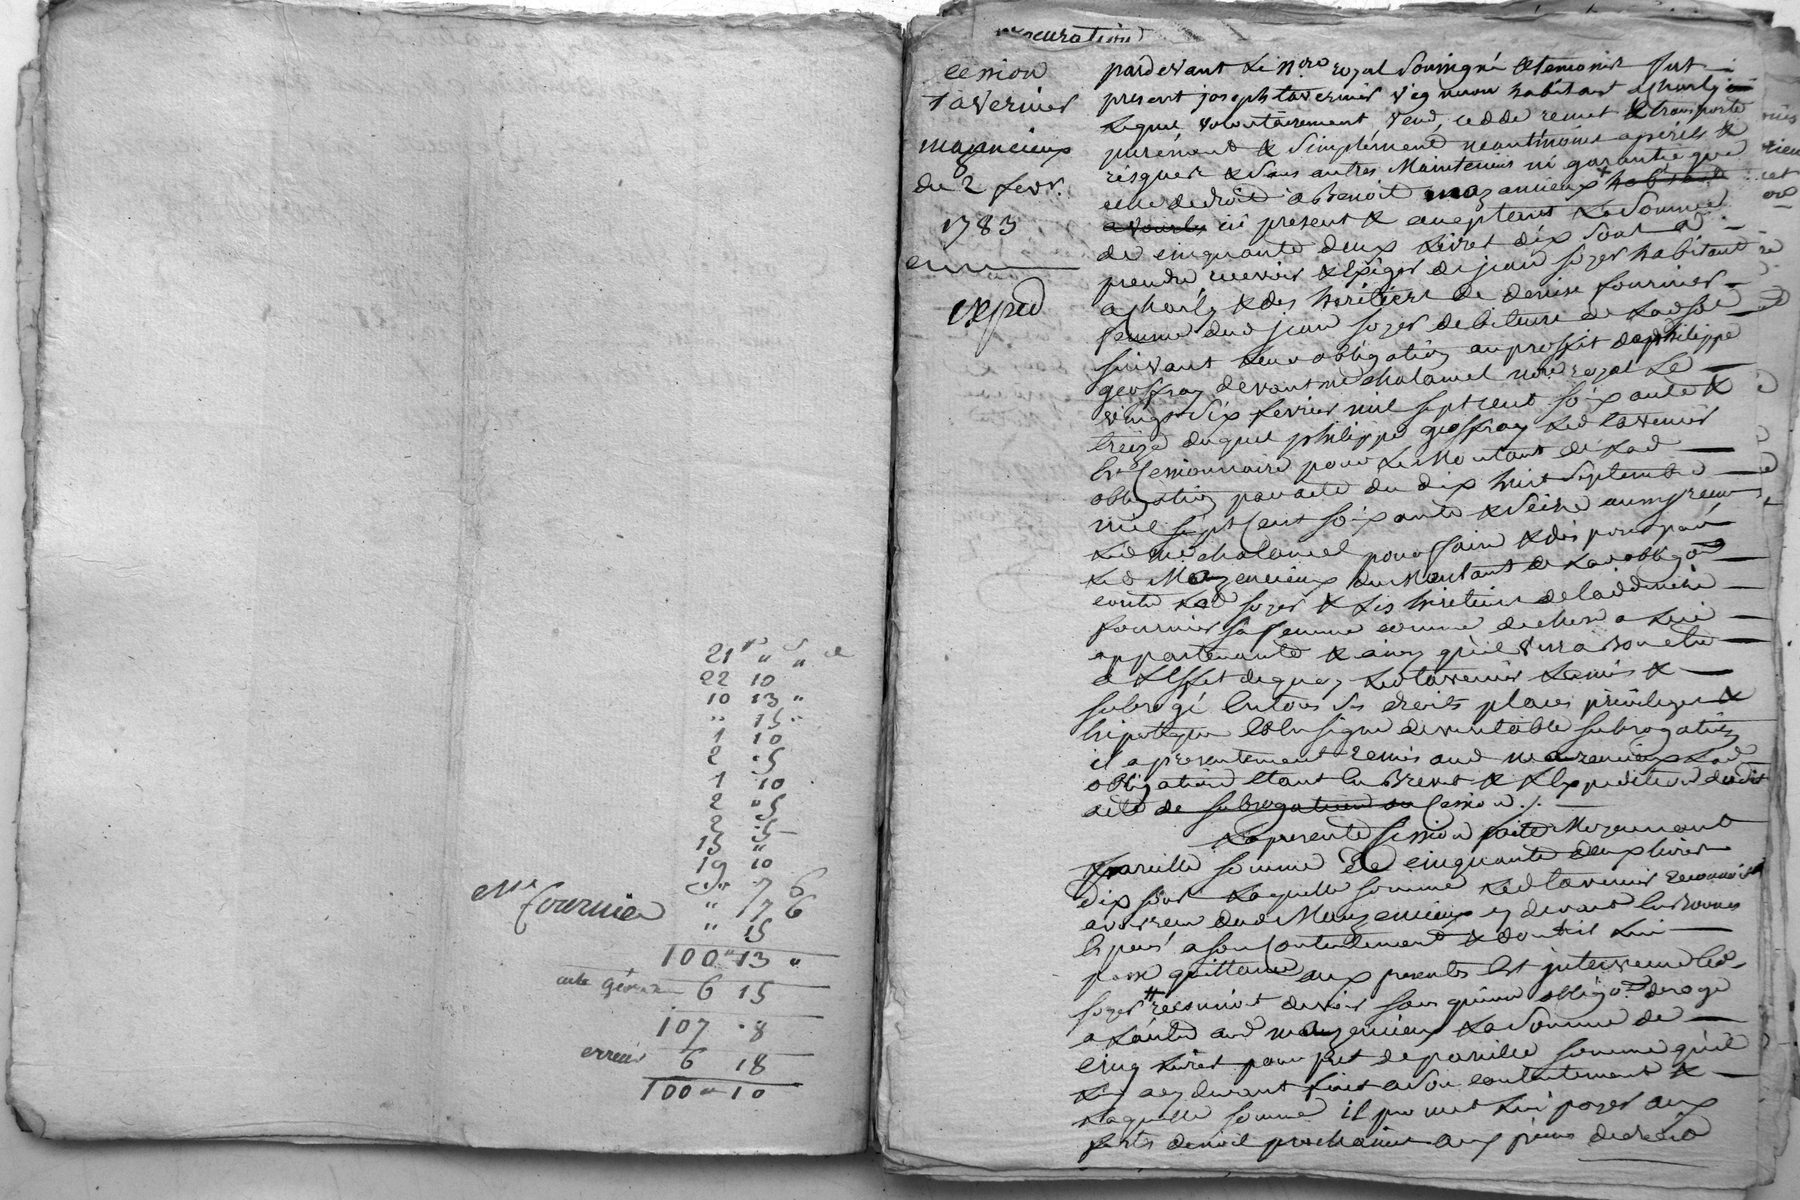 21 " "
22 10
10 13 "
" 15 "
1 10
2 5
1 10
2 5
2 5
15 "
19 10
" 7 6
Me fournier " 17 6
" 15
100 " 13 "
6 15
107 8
erreur 6 18
100 " 10
procuration
cession
Tavernier
mazencieux
du 2 fevr.
1783
exped
pardevant le nre royal soussigné & temoins fut
present joseph tavernier vigneron habitant a charly
lequel volontairement vend, cedde remet & transporte
purement & simplement neantmoins a perils &
risques & sans autres maintenüe ni garantie que
celle de droit a Benoit mazancieux habitant
a vourles ici present & acceptant la somme
de cinquante deux livres dix sous a
prendre recevoir & exiger de jean sozer habitant
a charly & des héritiers de denise fournier
femme dud jean sozer debiteurs de lad so
suivant leur obligation au proffit de philippe
geoffray devant me chalamel nore royal le
vingt six fevrier mil sept cent soixante &
treize duquel philippe geoffray led tavernier
est cessionnaire pour le montant de lad
obligation par acte du dix huit septembre
mil sept cent soixante & seize aussy reçu
led me chalamel pour faire & disposer par
led mazencieux du montant de lad obligon
contre led sozer & les héritiers de ladde denise
fournier sa femme comme de chose a lui
appartenante & ainsy qu'il verra bon etre
a l'effet de quoy led tavernier l'a mis &
subrogé en tous ses droits places privileges &
hipoteque et en signe de veritable subrogation
il a presentement remis aud mazencieux lad
obligation etant en brevet & l'expedition dudit
acte de subrogation ou cession ./.
La presente cession faite moyennant
pareille somme de cinquante deux livres
dix sous laquelle somme led tavernier reconnoit
avoir reçu dud mazencieux cy devant en bonnes
especes a son contentement & dont il lui
passe quittance aux presentes est intervenu led
sozer # reconnoit devoir sans qu'une obligon deroge
a l'autre aud mazencieux la somme de
cinq livres pour pret de pareille somme qu'il
lui a cy devant fait a son contentement &
laquelle somme il promet lui payer aux
fetes de noel prochaines aux peines de droit